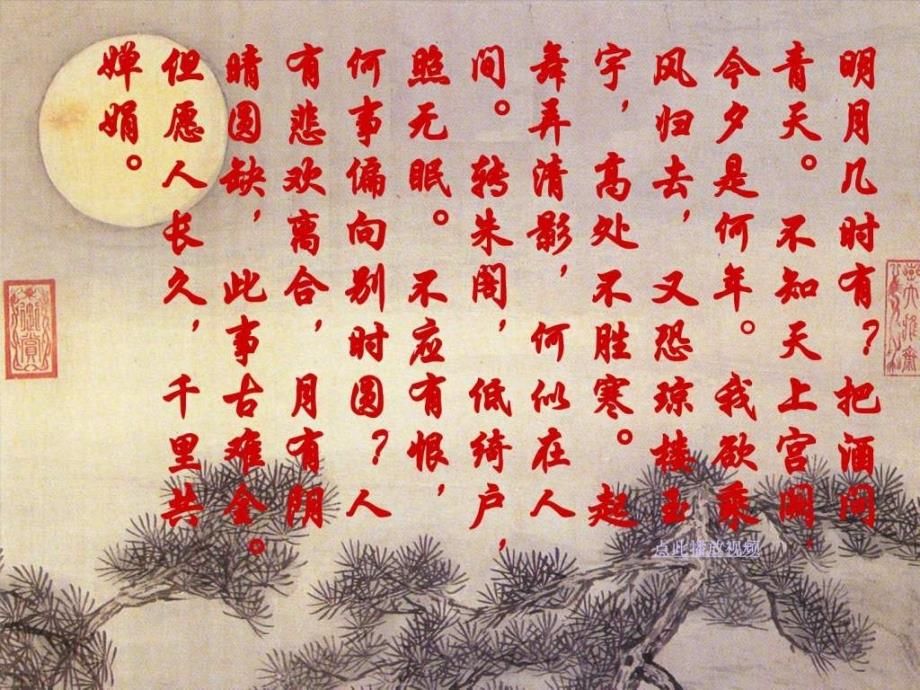 明月几时有？把酒问
青天。不知天上宫阙，
今夕是何年。我欲乘
风归去，又恐琼楼玉
宇，高处不胜寒。起
舞弄清影，何似在人
间。转朱阁，低绮户，
照无眠。不应有恨，
何事偏向别时圆？人
有悲欢离合，月有阴
晴圆缺，此事古难全。
但愿人长久，千里共
婵娟。
点此播放视频